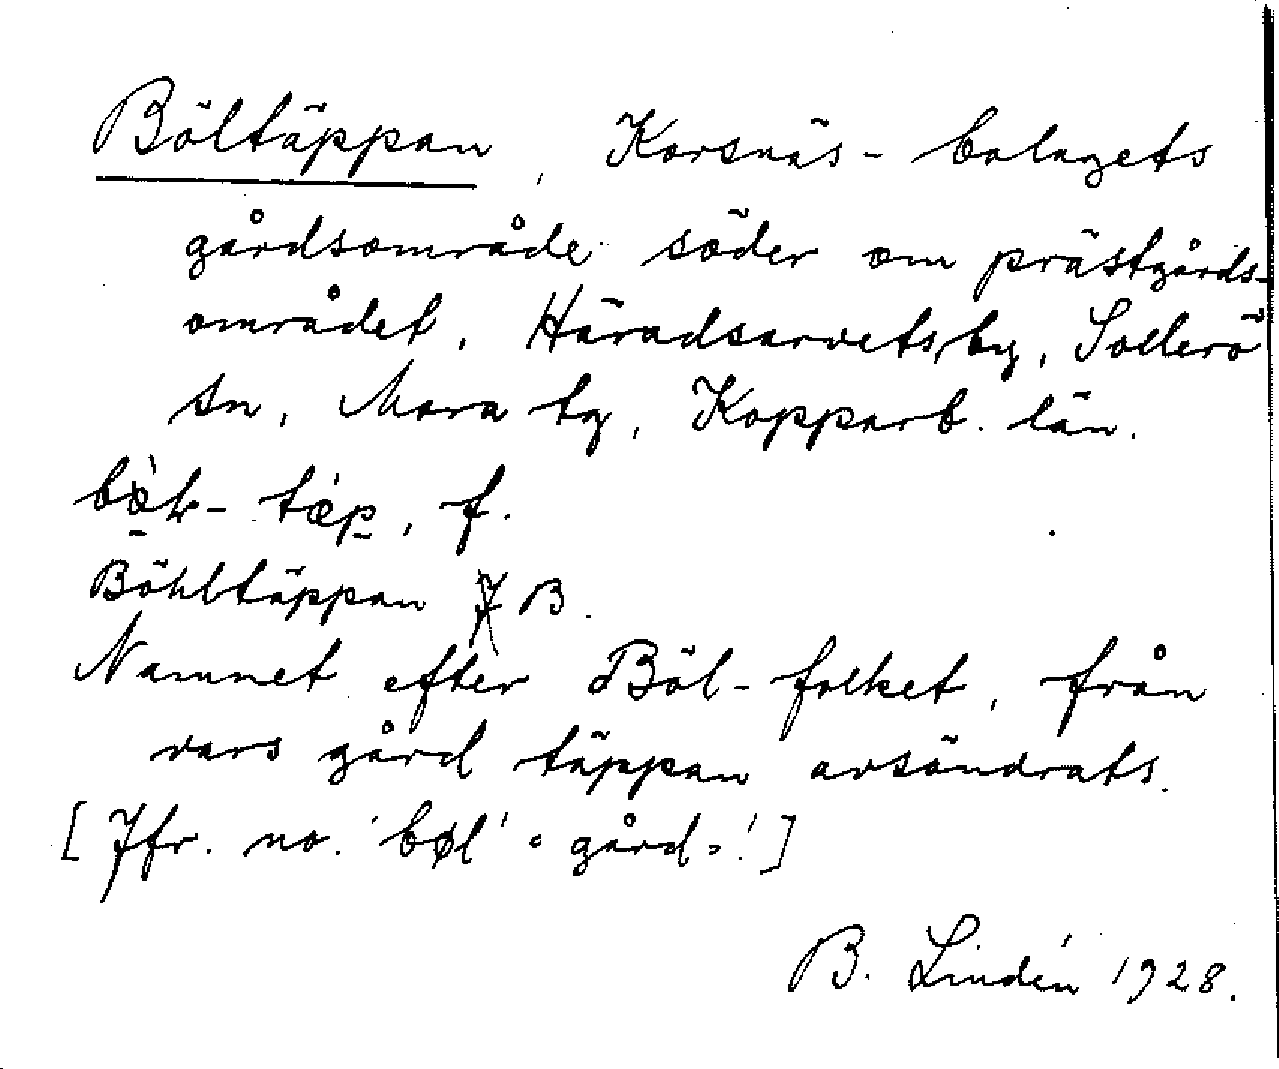 Böltäppan, Korsnäs-bolagets
gårdsområde söder om prästgårds-
området, Häradsarvets by, Sollerö
sn, Mora tg, Kopparb. län.
tæp, f.
Böhltäppan B.
Namnet efter Böl-folket, från
vars gård täppan avsöndrats.
[Jfr. no. 'bøl' "gård"!]
B. Lindén 1928.